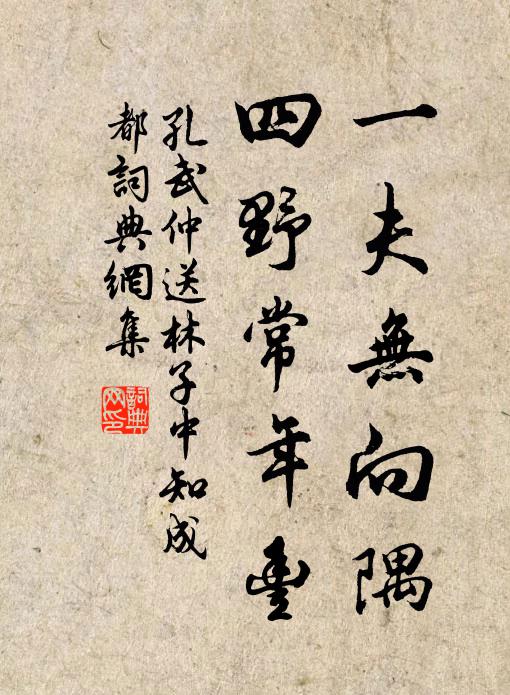 一夫無向隅
四野常年豐
孔武仲送林子中知成
都詞典網集
詞典
網印